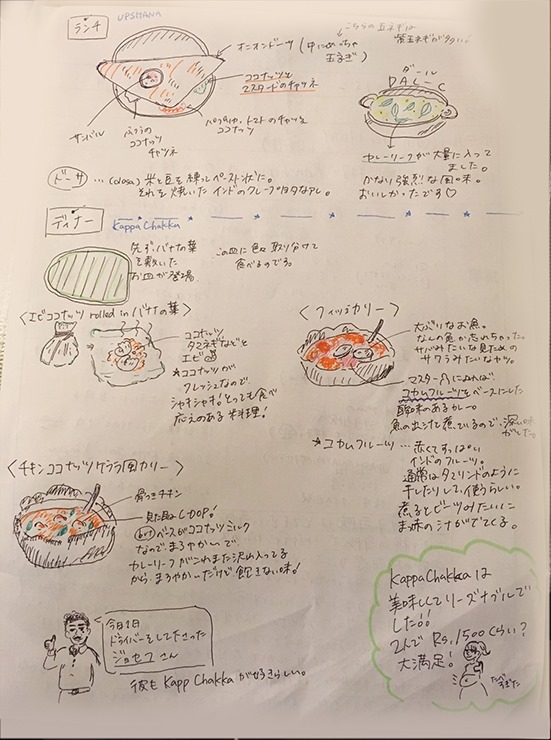 ランチ
UPSHANA
こちらの玉ネギは
紫玉ネギが多い。
オニオンドーサ（中にめっちゃ
玉ねぎ）
ココナッツと
マスタードのチャツネ
パプリカ、トマトのチャツネ
ココナッツ
サンバル
ふつうの
ココナッツ
チャツネ
ダール
DALーC
カレーリーフが大量に入って
ました。
かなり強烈な風味。
おいしかったです♡
ドーサ …(dosa) 米と豆を練ってペースト状に。
それを焼いたインドのクレープ的なアレ。
ディナー
Kappa Chakka
先ず、バナナの葉
を敷いた
お皿が登場
この皿に色々取り分けて
食べるのです。
〈エビココナッツ rolled in バナナの葉〉
ココナッツ
タマネギなどと
エビ
★ココナッツが
フレッシュなので
シャキシャキ！とっても食べ
応えのある料理！
〈フィッシュカリー〉
大ぶりなお魚。
なんの魚か忘れちゃった。
サバみたいな見ための
サワラみたいなヤツ。
マスター曰くによれば、
コカムフルーツをベースにした
酸味のあるカレー。
魚の出汁で煮ているので、深い味
がした。
★コカムフルーツ …赤くてすっぱい
インドのフルーツ。
通常はタマリンドのように
干したりして使うらしい。
煮るとビーツみたいに
赤い汁がでてくる。
〈チキンココナッツケララ風カリー〉
骨つきチキン
見た目はHOP！
butベースがココナッツミルク
なので、まろやかいで
カレーリーフがこれまた沢山入ってる
から、まろやかいだけど、飽きない味！
今日1日
ドライバーをして下さった
ジョセフさん
彼も Kapp Chakka が好きらしい。
Kappa Chakkaは
美味しくてリーズナブルで
した!!
2人で Rs.1500くらい？
大満足！
たべ
すぎた